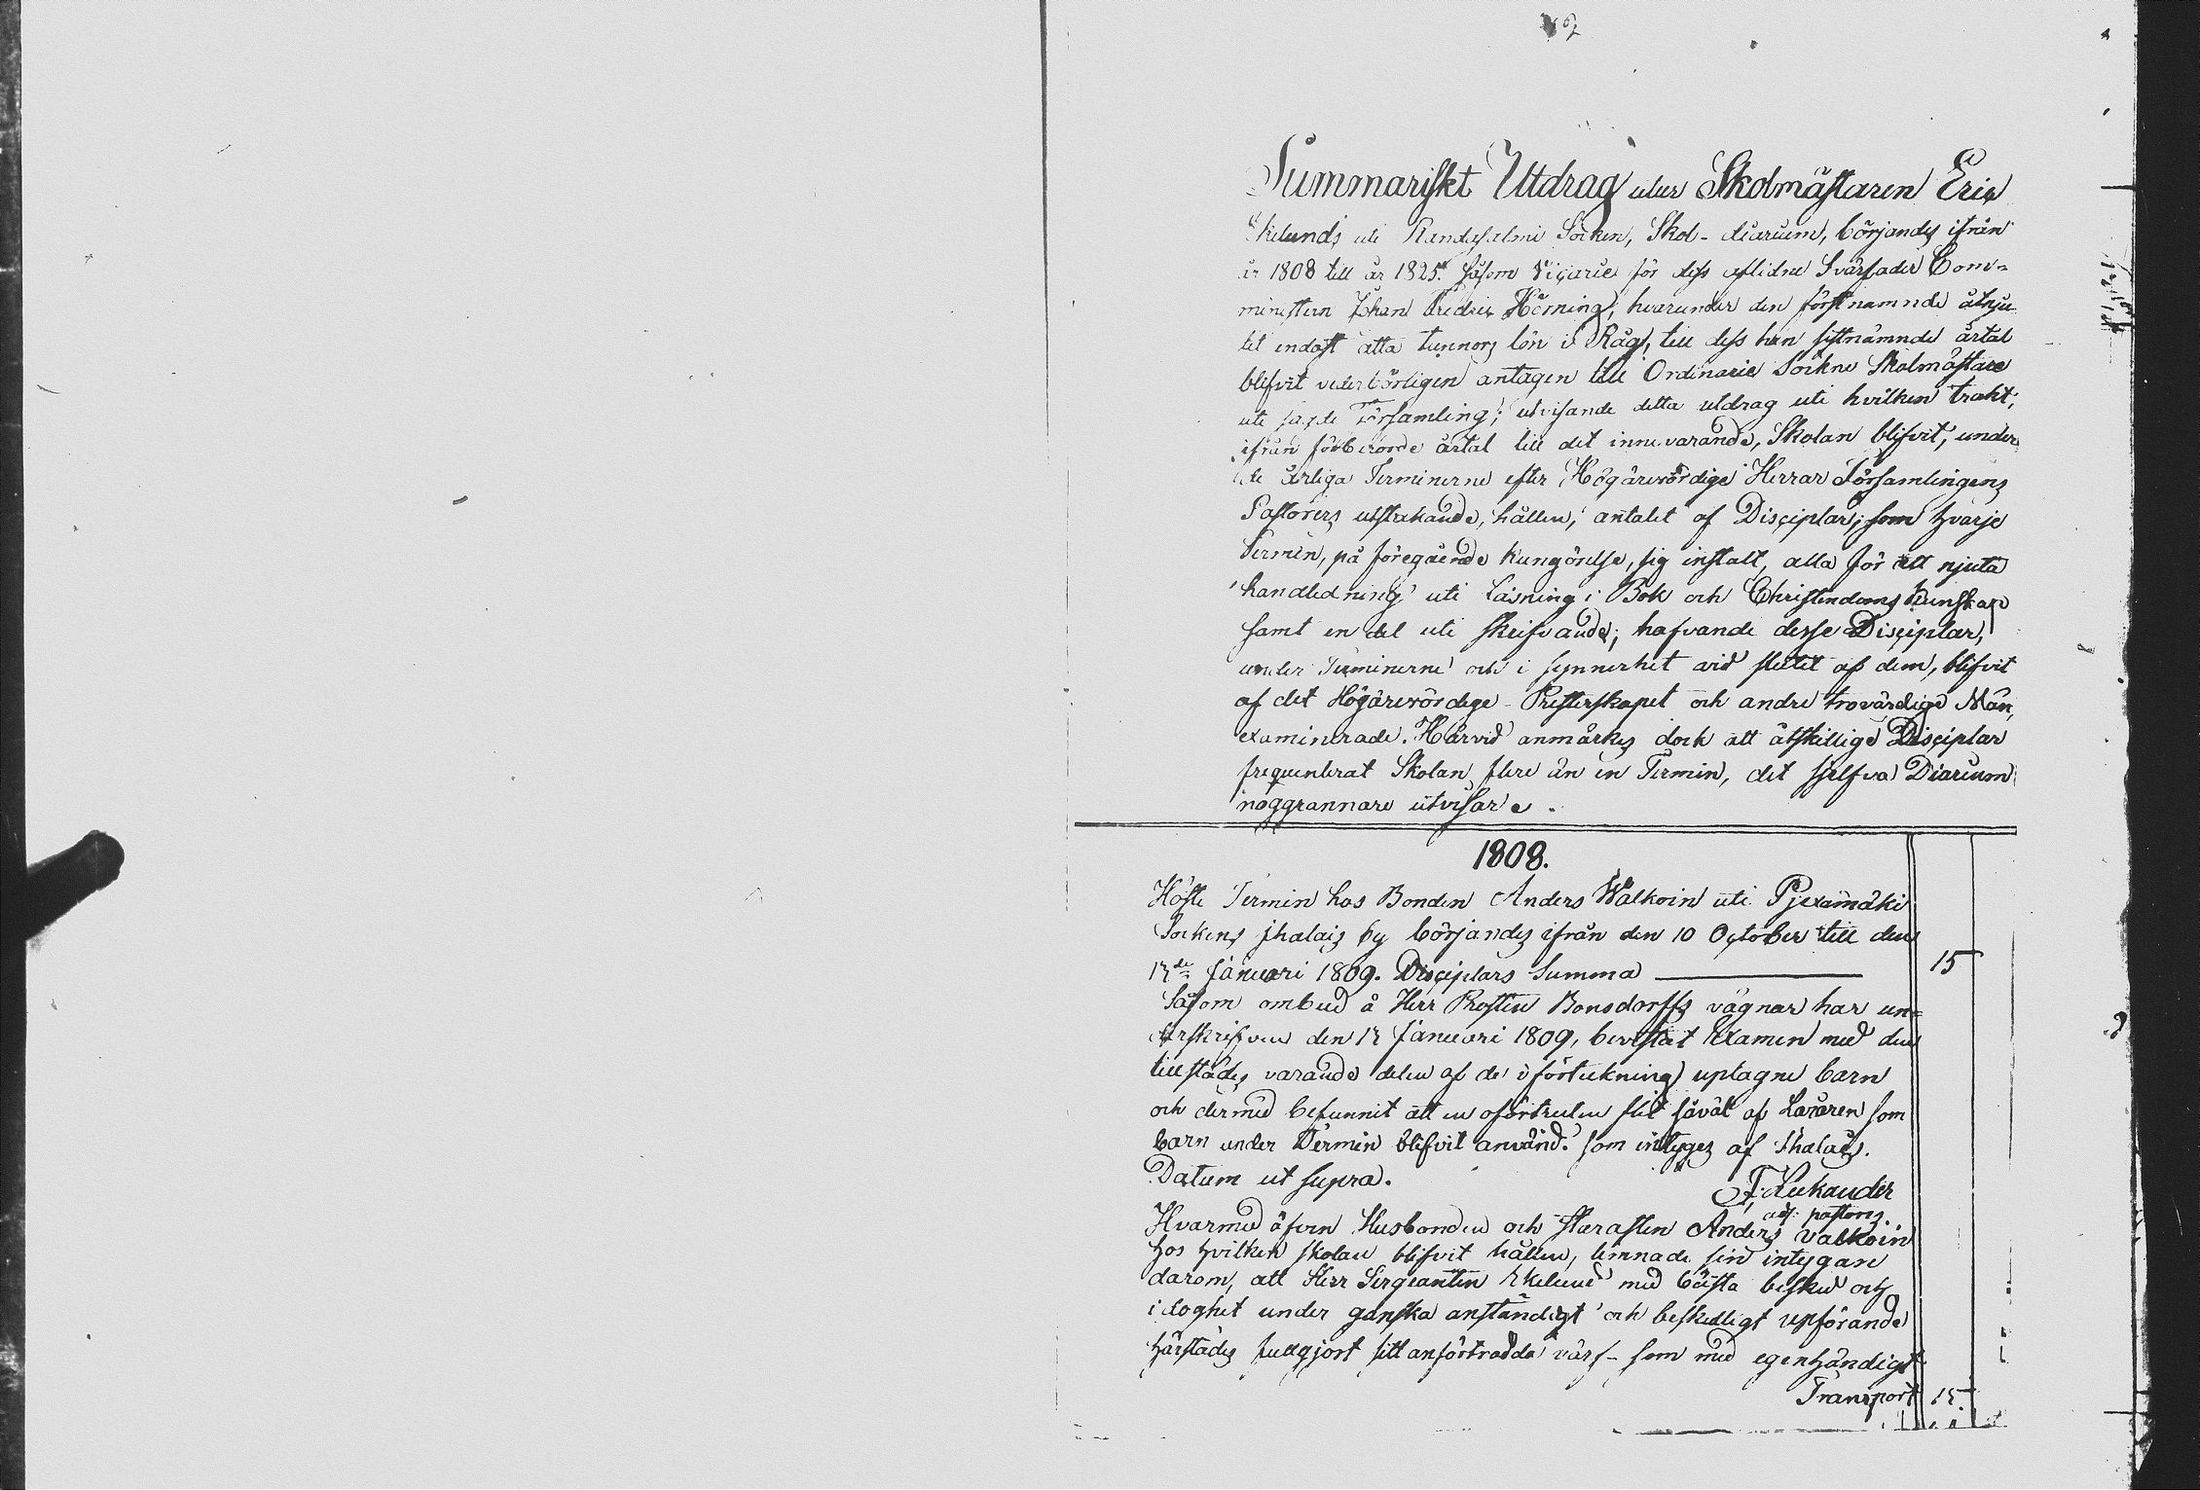 2
Summariskt Utdrag utur Skolmästaren Eric
Ekelunds uti Randasalmi Socken, Skol-diarium, börjandes ifrån
år 1808 till år 1825. såsom Vicarie för dess aflidne Svärfader Com-
ministern Johan Fredric Hörning, hvarunder den förstnämnde åtnju-
tit endast åtta tunnors lön i Råg, till dess han sistnämnde årtal
blifvit vederbörligen antagen till Ordinarie Sockne Skolmästare
uti sagde Församling; utvisande detta utdrag uti hvilken trakt,
ifrån förberörde årtal till det innevarande, Skolan blifvit, under
de årliga Terminerne efter Högärevördige Herrar Församlingens
Pastorers utstakande, hållen, antalet af Disciplar, som hvarje
Termin, på föregående kungörelse, sig instält, alla för att njuta
handledning uti läsning i Bok och Christendoms kunskap
samt en del uti skrifvande; hafvande desse Disciplar,
under Terminerne och i synnerhet vid slutet af dem, blifvit
af det Högärevördige Presterskapet och andre trovärdige Män,
examinerade. Härvid anmärkes dock att åtskillige Disciplar
frequenterat Skolan flere än en Termin, det sjelfva Diarium
noggrannare utvisar.
1808.
Höste Termin hos Bonden Anders Walkoin uti Pjexämäki
Sockens Jhalais by börjandes ifrån den 10 October till den
17de Januari 1809. Disciplars Summa 15
Såsom ombud å Herr Prosten Bonsdorffs vägnar har un-
derskrifven den 17 Januari 1809, bevistat Examen med den
tillstädes varande delen af de i förteckning uptagne barn
och dermed befunnit att en oförtruten flit såväl af Läraren som
barn under Termin blifvit använd. som intyges af Jhalais.
Datum ut supra.
F. Leukander
adj. pastoris.
Hvarmed äfven Husbonden och Skeraften Anders Valkoin
hos hvilken skolan blifvit hållen, lemnade sin intygan
darom, att Herr Sergeanten Ekelund med bästa besked och
idoghet under ganska anständigt och beskedligt upförande
härstädes fullgjort sitt anförtrodda värf som med egenhändigt
Transport 15.